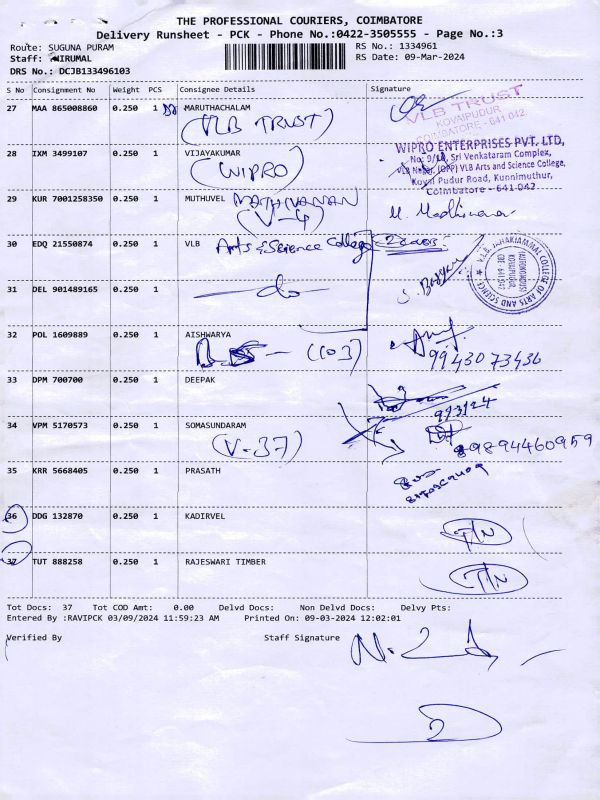 THE PROFESSIONAL COURIERS, COIMBATORE
Delivery Runsheet - PCK - Phone No.:0422-3505555 - Page No.:3
Route: SUGUNA PURAM
RS No.: 1334961
Staff: NIRUMAL
RS Date: 09-Mar-2024
DRS No.: DCJB133496103
S No Consignment No Weight PCS Consignee Details Signature
27 MAA 865008860 0.250 1 MARUTHACHALAM
(VLB TRUST)
VLB TRUST
KOVAIPUDUR
COIMBATORE - 641 042
28 IXM 3499107 0.250 1 VIJAYAKUMAR
(WIPRO)
WIPRO ENTERPRISES PVT. LTD,
No: 9/1A, Sri Venkataram Complex,
VLB Nagar, (OPP) VLB Arts and Science College,
Kovai Pudur Road, Kunnimuthur,
Coimbatore - 641 042
29 KUR 7001258350 0.250 1 MUTHUVEL MATHIVANAN
(V-4)
30 EDQ 21550874 0.250 1 VLB Arts & Science College
31 DEL 901489165 0.250 1 -do-
32 POL 1609889 0.250 1 AISHWARYA
(103)
9943073436
33 DPM 700700 0.250 1 DEEPAK
34 VPM 5170573 0.250 1 SOMASUNDARAM
(V-37)
9894460959
35 KRR 5668405 0.250 1 PRASATH
36 DDG 132870 0.250 1 KADIRVEL
T/N
37 TUT 888258 0.250 1 RAJESWARI TIMBER
T/N
Tot Docs: 37 Tot COD Amt: 0.00 Delvd Docs: Non Delvd Docs: Delvy Pts:
Entered By :RAVIPCK 03/09/2024 11:59:23 AM Printed On: 09-03-2024 12:02:01
Verified By Staff Signature